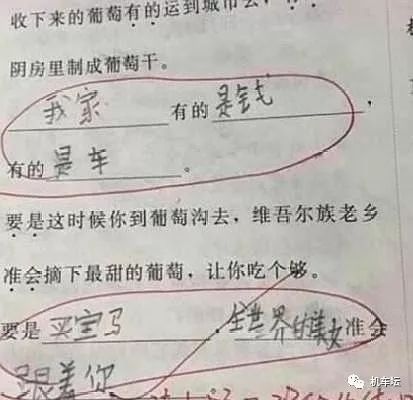 收下来的葡萄有的运到城市去
阴房里制成葡萄干。
我家有的是钱，
有的是车。
要是这时候你到葡萄沟去，维吾尔族老乡
准会摘下最甜的葡萄，让你吃个够。
要是买宝马，全世界的美女准会
跟着你
机车坛